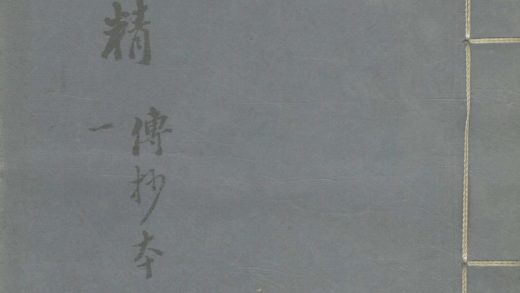 精
傳抄本
一